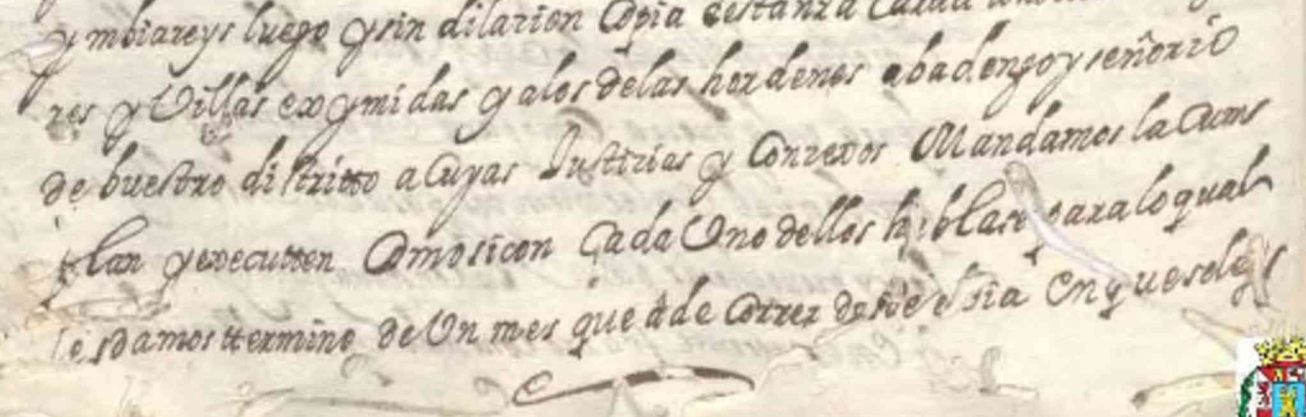 ymbiareys luego y sin dilacion Copia desta
res y Villas exsymidas y a los de las hordenes abadengo y señorio
de buestro distritto a Cuyas Justicias y Concexos Mandamos la Cum
plan y executten Como si con Cada Uno dellos hablase para lo qual
les damos ttermino de Un mes que a de Correr desde el dia En que se les